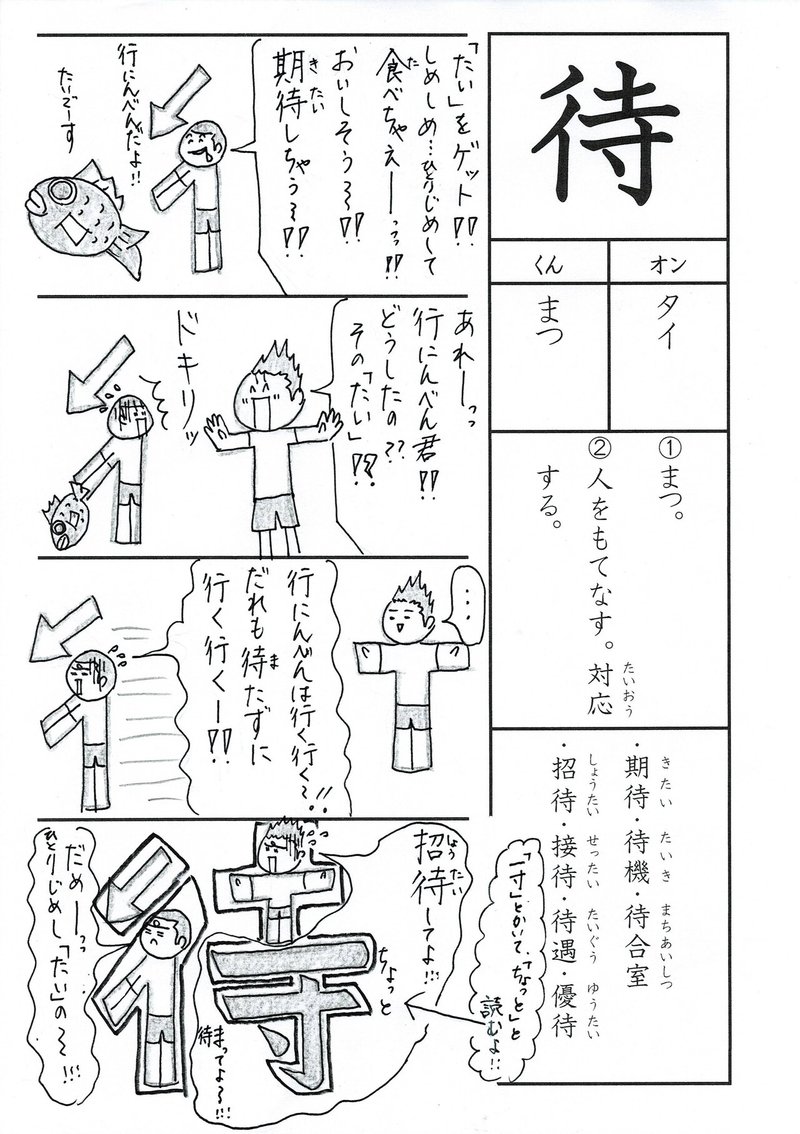 待
オン
くん
タイ
まつ
①まつ。
②人をもてなす。対応
たいおう
する。
・期待・待機・待合室
きたい たいき まちあいしつ
・招待・接待・待遇・優待
しょうたい せったい たいぐう ゆうたい
「たい」をゲット!!
しめしめ…ひとりじめして
食べちゃえーーっっ!!
た
おいしそう～!!
期待しちゃう～!!
きたい
行にんべんだよ!!
たいでーす
あれーっっ
行にんべん君!!
どうしたの??
その「たい」!?
ドキリッ
・・・
行にんべんは行く行く～!!
だれも待たずに
ま
行く行くー!!
「一寸」とかいて、「ちょっと」と
読むよ!!
招待してよ!!!
しょうたい
ちょっと
待ってよ～!!!
ま
だめーーっっ
ひとりじめし「たい」の～!!!